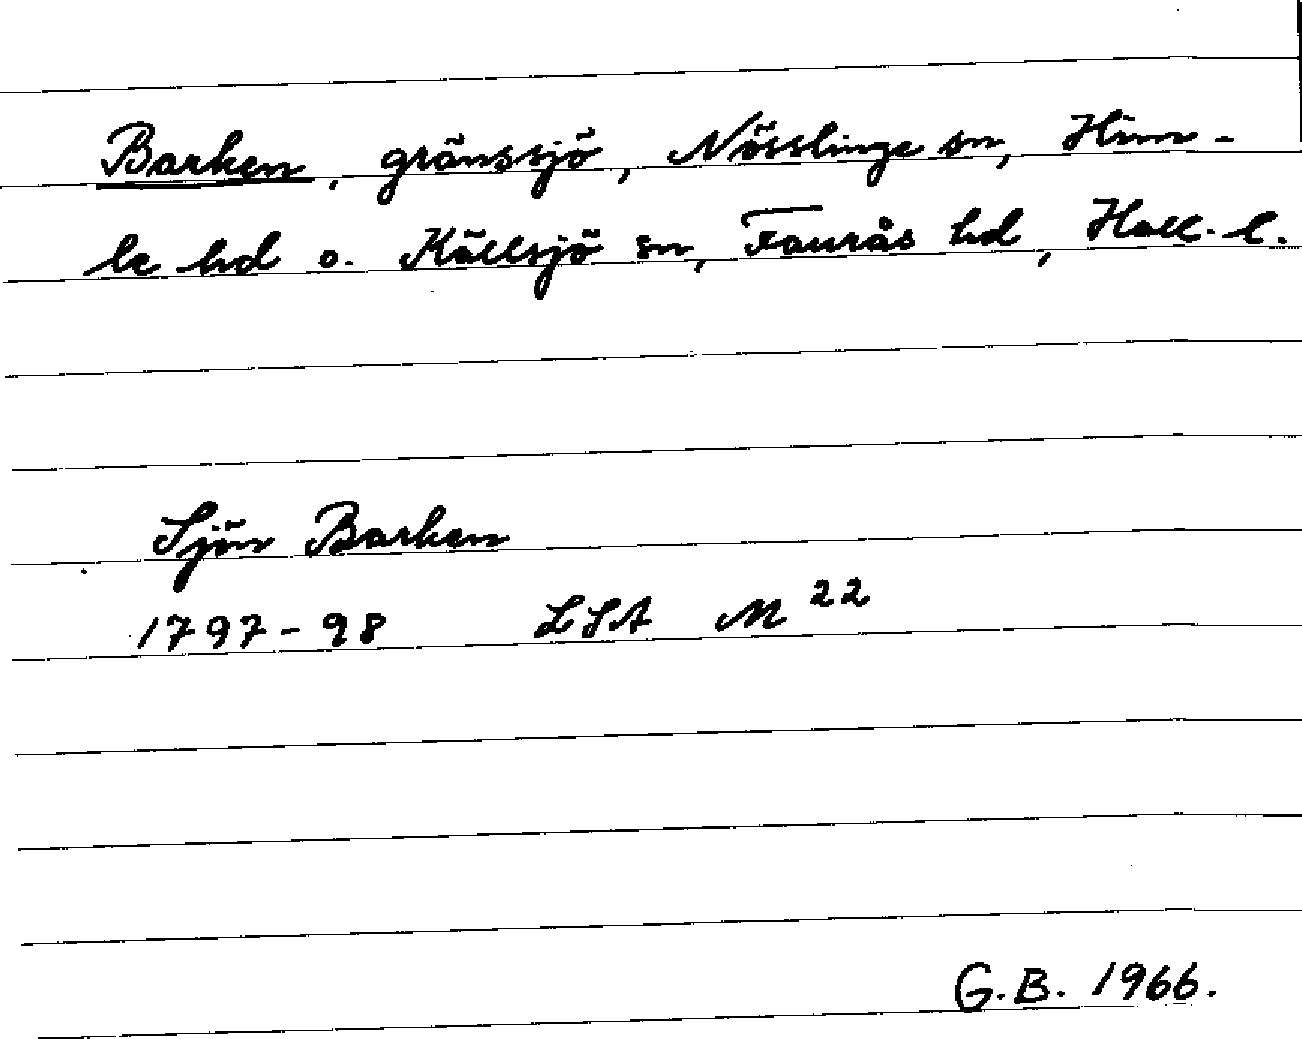 Barken, gränssjö, Nösslinge sn, Him-
le hd o. Källsjö sn, Faurås hd, Hall. l.
Sjön Barken
1797-98 LSA M 22
G.B. 1966.